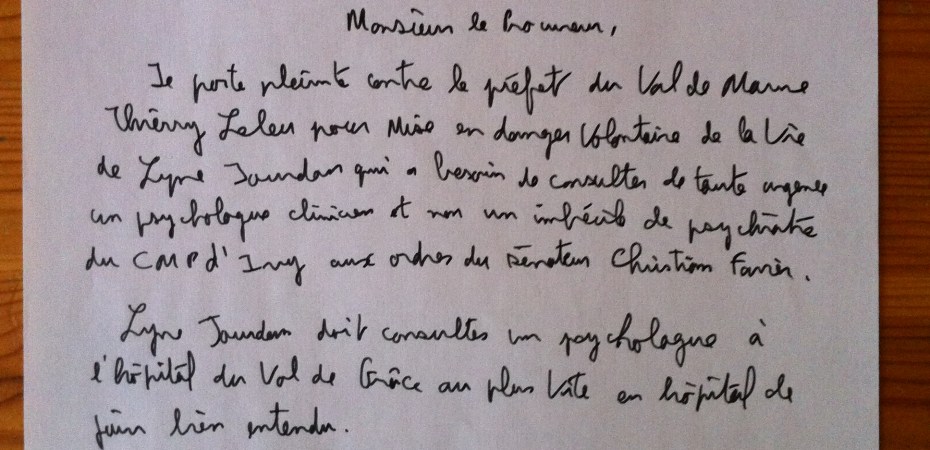 Monsieur le Procureur,
Je porte plainte contre le préfet du Val de Marne
Thierry Leleu pour Mise en danger Volontaire de la Vie
de Lyne Jourdan qui a besoin de consulter de toute urgence
un psychologue clinicien et non un imbécile de psychiatre
du CMP d'Ivry aux ordres du sénateur Christian Favier.
Lyne Jourdan doit consulter un psychologue à
l'hôpital du Val de Grâce au plus Vite en hôpital de
jour bien entendu.